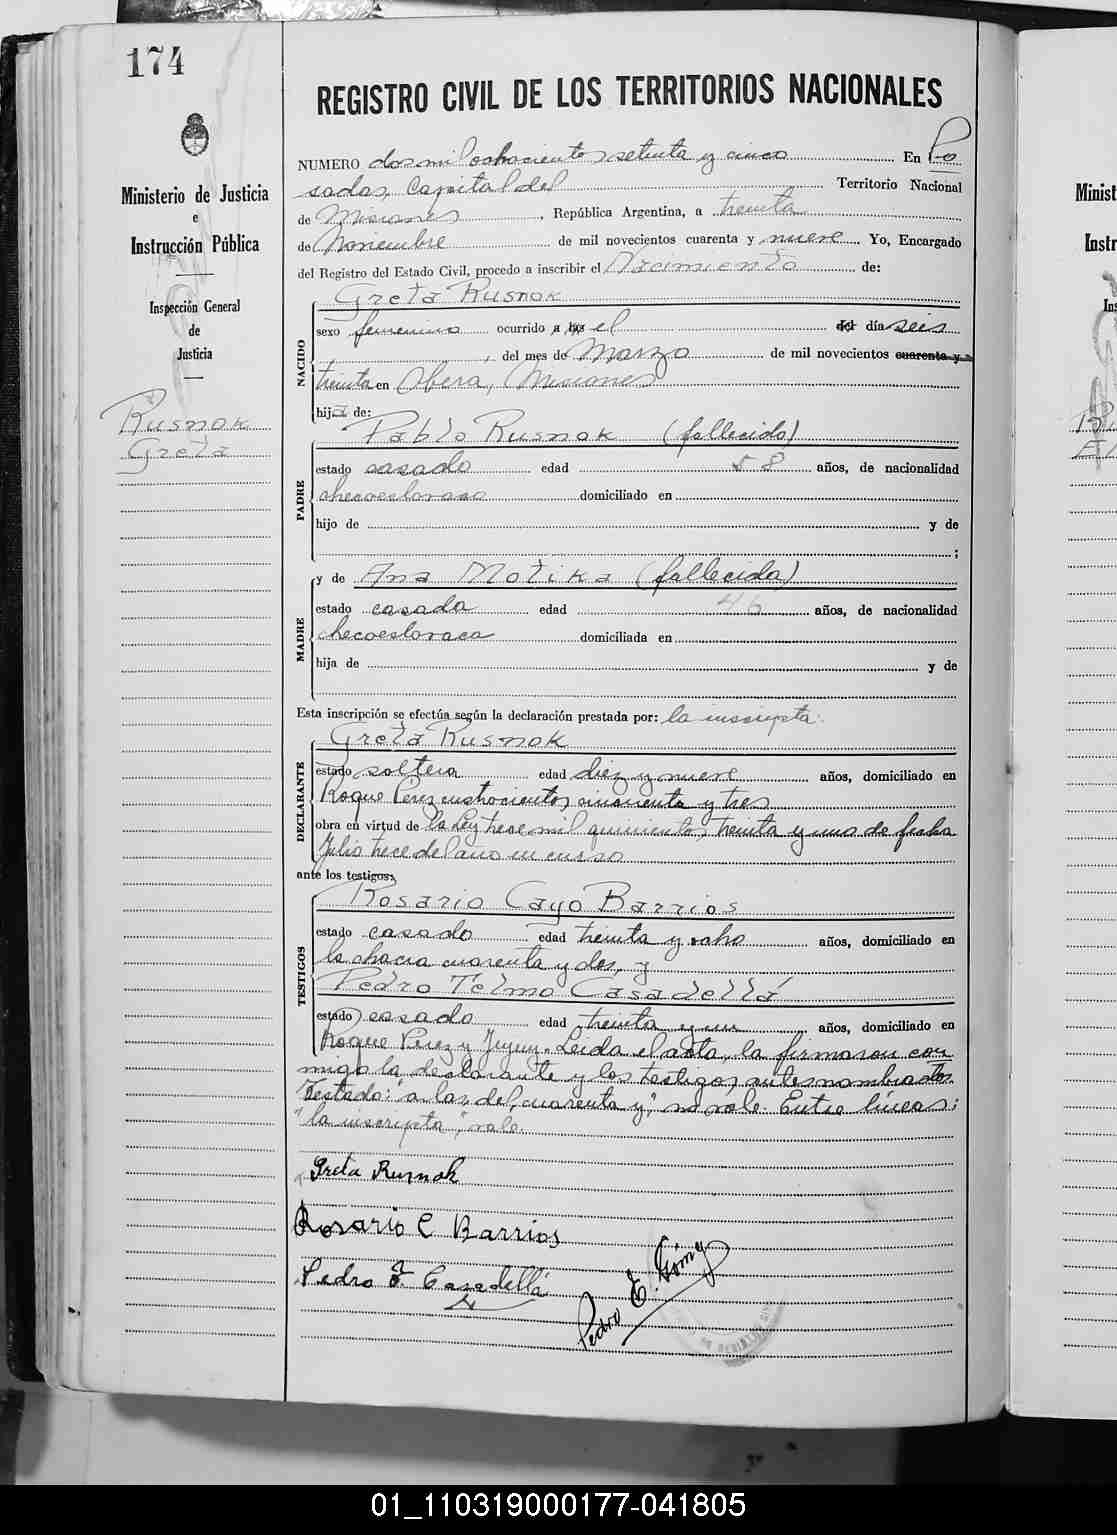 174
Ministerio de Justicia
e
Instrucción Pública
Inspección General
de
Justicia
Rusnok
Greta
REGISTRO CIVIL DE LOS TERRITORIOS NACIONALES
NUMERO dos mil ochocientos setenta y cinco En Po
sadas, Capital del Territorio Nacional
de Misiones, República Argentina, a treinta
de Noviembre de mil novecientos cuarenta y nueve. Yo, Encargado
del Registro del Estado Civil, procedo a inscribir el Nacimiento de:
NACIDO
Greta Rusnok
sexo femenino ocurrido a las el del día seis
, del mes de Marzo de mil novecientos cuarenta y
treinta en Obera, Misiones
hija de:
PADRE
Pablo Rusnok (fallecido)
estado casado edad 58 años, de nacionalidad
checoeslovaco domiciliado en
hijo de y de
;
MADRE
y de Ana Motika (fallecida)
estado casada edad 46 años, de nacionalidad
checoeslovaca domiciliada en
hija de y de
Esta inscripción se efectúa según la declaración prestada por: la inscripta.
DECLARANTE
Greta Rusnok
estado soltera edad diez y nueve años, domiciliado en
Roque Perez cuatrocientos cincuenta y tres
obra en virtud de la Ley trece mil quinientos treinta y uno de fecha
Julio trece del año en curso
ante los testigos:
TESTIGOS
Rosario Cayo Barrios
estado casado edad treinta y ocho años, domiciliado en
la chacra cuarenta y dos, y
Pedro Telmo Casadellá
estado casado edad treinta y un años, domiciliado en
Roque Perez y Jujuy. Leida el acta, la firmaron con
migo la declarante y los testigos antes nombrados.
Testado: "a las, del, cuarenta y", no vale. Entre líneas:
"la inscripta", vale.
Greta Rusnok
Rosario C Barrios
Pedro T. Casadellá
Pedro E.
Minist
Instr
01_110319000177-041805